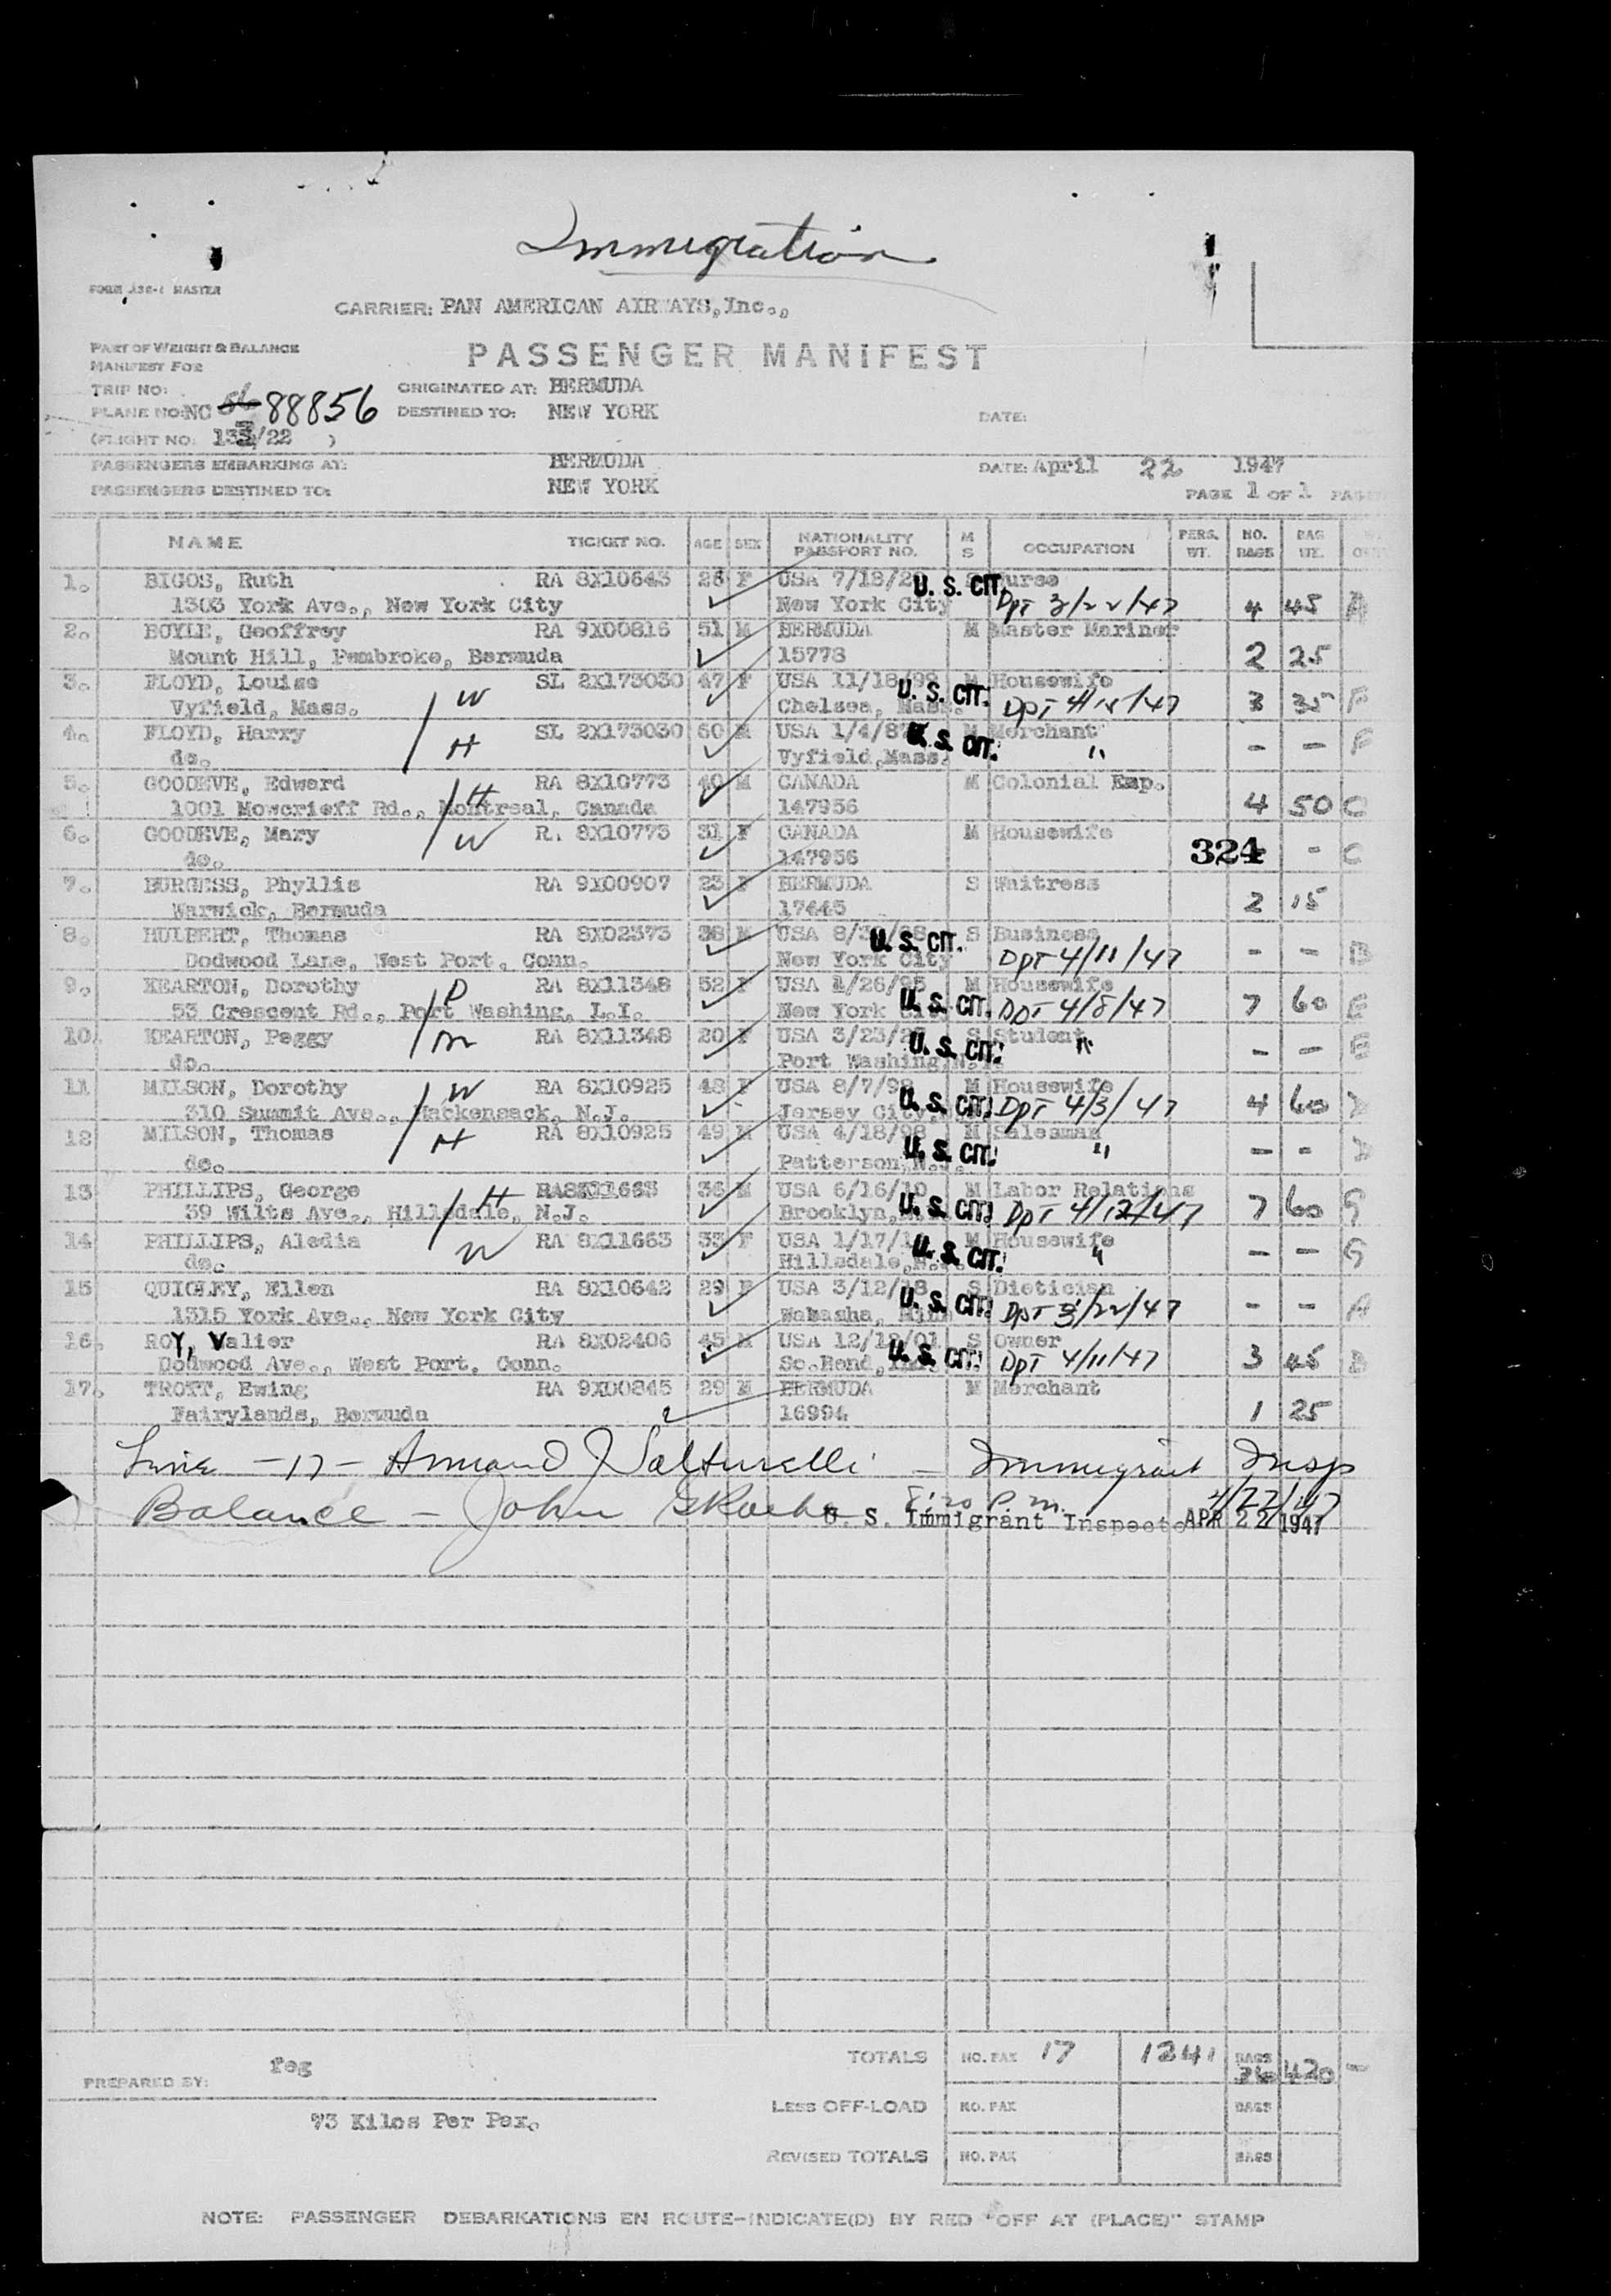 Immigration
FORM 432-1 MASTER
CARRIER: PAN AMERICAN AIRWAYS, Inc.,
PART OF WEIGHT & BALANCE
MANIFEST FOR
PASSENGER MANIFEST
TRIP NO: ORIGINATED AT: BERMUDA
PLANE NO: NC 88856 DESTINED TO: NEW YORK DATE:
(FLIGHT NO: /22 )
PASSENGERS EMBARKING AT: BERMUDA DATE: April 22 1947
PASSENGERS DESTINED TO: NEW YORK PAGE 1 OF 1
NAME TICKET NO. AGE SEX NATIONALITY PASSPORT NO. M S OCCUPATION PERS. WT. NO. BAGS BAG WT.
1. BIGOS, Ruth RA 8X10643 26 F USA 7/18/2 U. S. CIT. Nurse
1303 York Ave., New York City New York City Dpt 3/22/47 4 45 A
2. BOYLE, Geoffrey RA 9X00816 51 M BERMUDA M Master Mariner
Mount Hill, Pembroke, Bermuda 15778 2 25
3. FLOYD, Louise W SL 2X173030 47 F USA 11/18/99 U. S. CIT. M Housewife
Vyfield, Mass. Chelsea, Mass. Dpt 3 35 F
4. FLOYD, Harry H SL 2X173030 60 M USA 1/4/87 U. S. CIT. M Merchant
do. Vyfield, Mass. " - - F
5. GOODEVE, Edward H RA 8X10773 40 M CANADA M Colonial Emp.
1001 Mowcrieff Rd., Montreal, Canada 147956 4 50 C
6. GOODEVE, Mary W R. 8X10773 31 F CANADA M Housewife
do. 147956 324 - C
7. BURGESS, Phyllis RA 9X00907 23 F BERMUDA S Waitress
Warwick, Bermuda 17445 2 15
8. HULBERT, Thomas RA 8X02373 38 M USA 8/3 U. S. CIT. S Business
Dodwood Lane, West Port, Conn. New York City Dpt 4/11/47 - - B
9. KEARTON, Dorothy D RA 8X11348 52 F USA 1/26/95 U. S. CIT. M Housewife
53 Crescent Rd., Port Washing, L.I. New York Dpt 4/8/47 7 60 E
10. KEARTON, Peggy m RA 8X11348 20 F USA 3/23/2 U. S. CIT. S Student
do. Port Washing, N.Y. " - - E
11 MILSON, Dorothy W RA 8X10925 48 F USA 8/7/98 U. S. CIT. M Housewife
310 Summit Ave., Hackensack, N.J. Jersey City, Dpt 4/3/47 4 60 D
12 MILSON, Thomas H RA 8X10925 49 M USA 4/18/98 U. S. CIT. M Salesman
do. Patterson, N.J. " - - D
13 PHILLIPS, George H RA8X11663 36 M USA 6/16/10 U. S. CIT. M Labor Relations
39 Wilts Ave., Hillsdale, N.J. Brooklyn, Dpt 4/12/47 7 60 G
14 PHILLIPS, Aledia W RA 8X11663 33 F USA 1/17/1 U. S. CIT. M Housewife
do. Hillsdale, N.J. " - - G
15 QUIGLEY, Ellen RA 8X10642 29 F USA 3/12/18 U. S. CIT. S Dietician
1315 York Ave., New York City Wabasha, Minn Dpt 3/22/47 - - A
16. ROY, Valier RA 8X02406 45 M USA 12/18/01 U. S. CIT. S Owner
Dodwood Ave., West Port, Conn. So.Bend, Ind. Dpt 4/11/47 3 45 B
17. TROTT, Ewing RA 9X00845 29 M BERMUDA M Merchant
Fairylands, Bermuda 16994 1 25
Line -17- Armand J Salturelli - Immigrant Insp
Balance - John P.m. 4/22/47
U. S. Immigrant Inspector APR 22 1947
TOTALS NO. PAX 17 1241 BAGS 36 420 -
PREPARED BY: Peg
LESS OFF-LOAD NO. PAX BAGS
73 Kilos Per Pax.
REVISED TOTALS NO. PAX BAGS
NOTE: PASSENGER DEBARKATIONS EN ROUTE-INDICATE(D) BY RED "OFF AT (PLACE)" STAMP